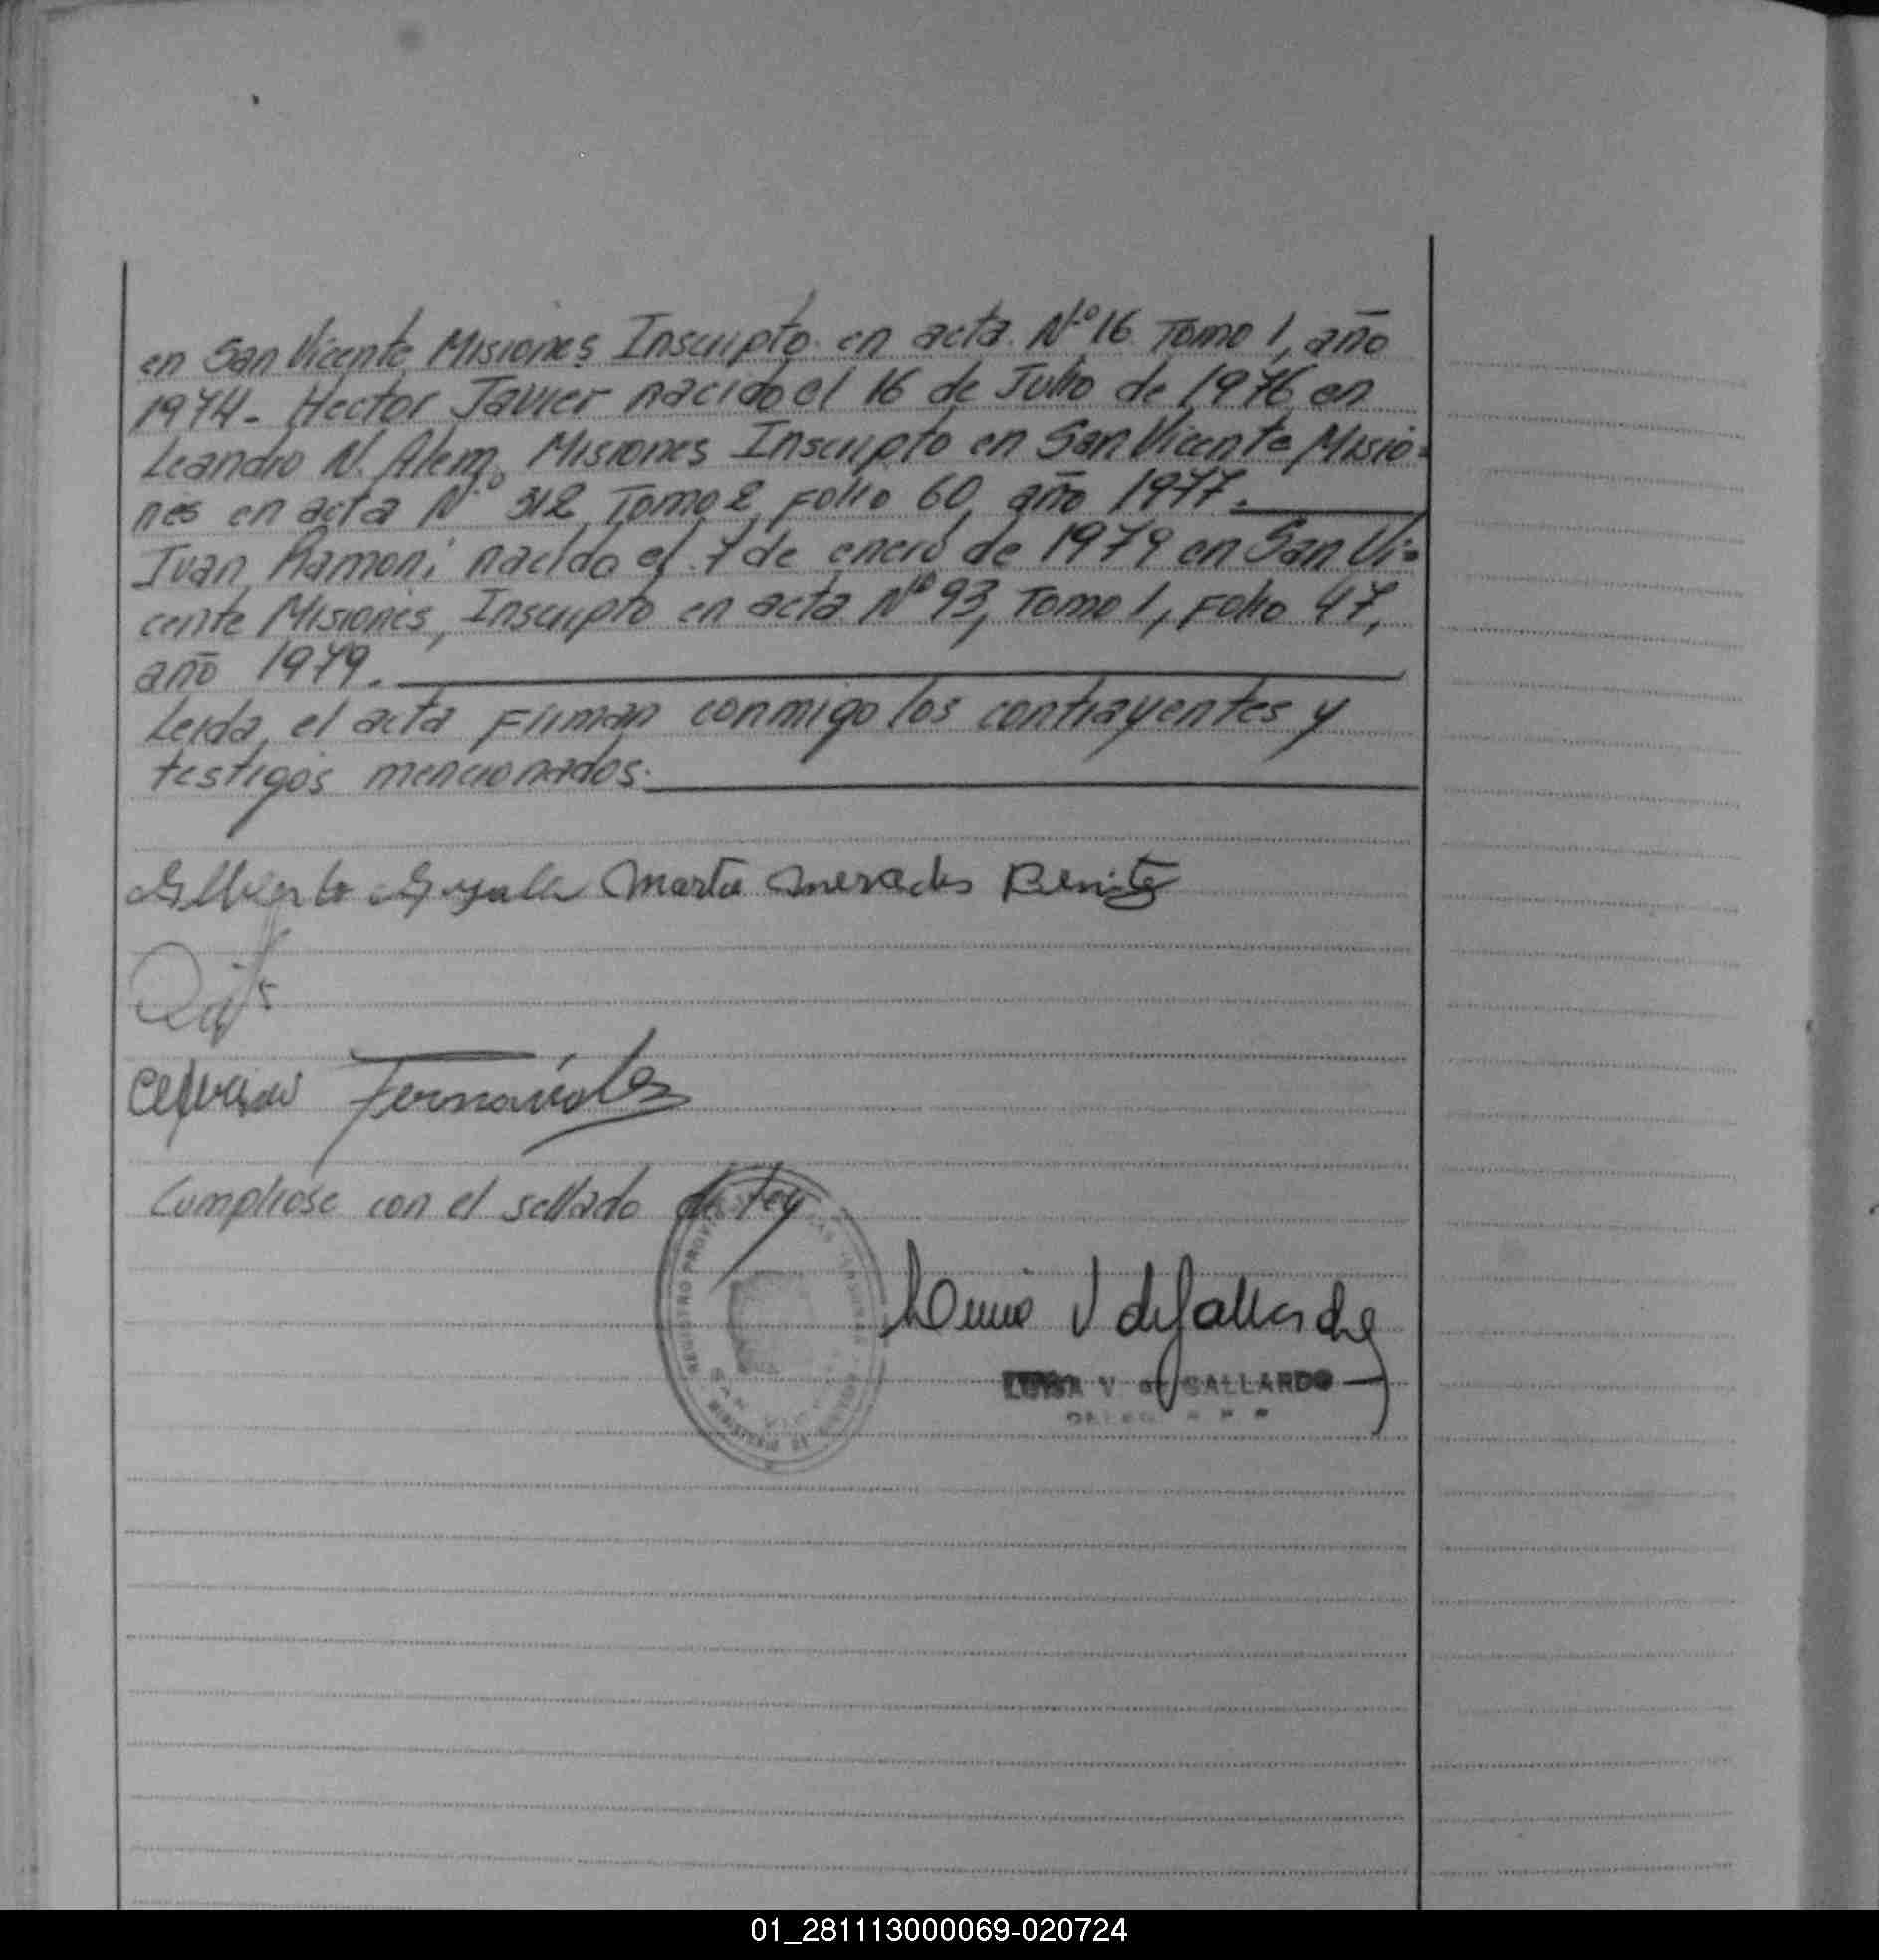 en San Vicente, Misiones Inscripto en acta Nº 16 Tomo 1, año
1974. Hector Javier nacido el 16 de Julio de 1976, en
Leandro N. Alem, Misiones Inscripto en San Vicente Misio-
nes en acta Nº 312, Tomo 2, Folio 60, año 1977.
Juan Ramon; nacido el 7 de enero de 1979 en San Vi-
cente Misiones, Inscripto en acta Nº 93, Tomo 1, Folio 47,
año 1979.
Leida, el acta Firman conmigo los contrayentes y
testigos mencionados.
Gilberto Ayala Marta Mercedes Benitez
Fernandez
Cumpliose con el sellado de Ley
V de Gallardo
LUISA V. de GALLARDO
REGISTRO
01_281113000069-020724